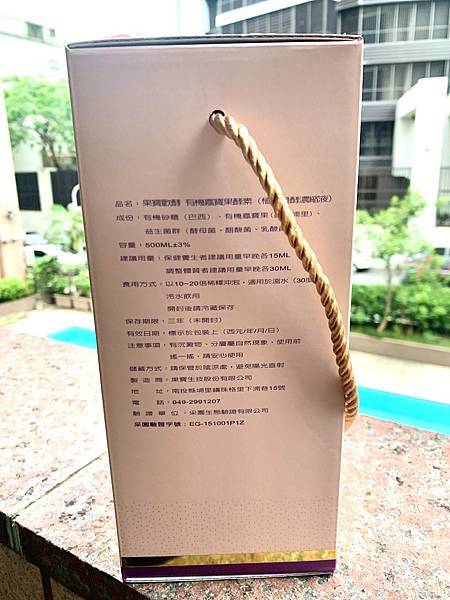 品名：果寶歡酵 有機嘉寶果酵素（植 酵濃縮液）
成份：有機砂糖（巴西）、有機嘉寶果（ 埔里）、
益生菌群（酵母菌、醋酸菌、乳酸
容量：500ML±3%
建議用量：保健養生者建議用量早晚各15ML
調整體質者建議用量早晚各30ML
食用方式：以10~20倍稀釋沖泡，適用於溫水（30度
冷水飲用
開封後請冷藏保存
保存期限：三年（未開封）
有效日期：標示於包裝上（西元/年/月/日）
注意事項：有沉澱物、分層屬自然現象，使用前
搖一搖，請安心使用
儲藏方式：請保管於陰涼處，避免陽光直射
製造商：果寶生技股份有限公司
地址：南投縣埔里鎮珠格里下湳巷15號
電話：049-2991207
驗證單位：采園生態驗證有限公司
采園驗證字號：EG-151001P1Z